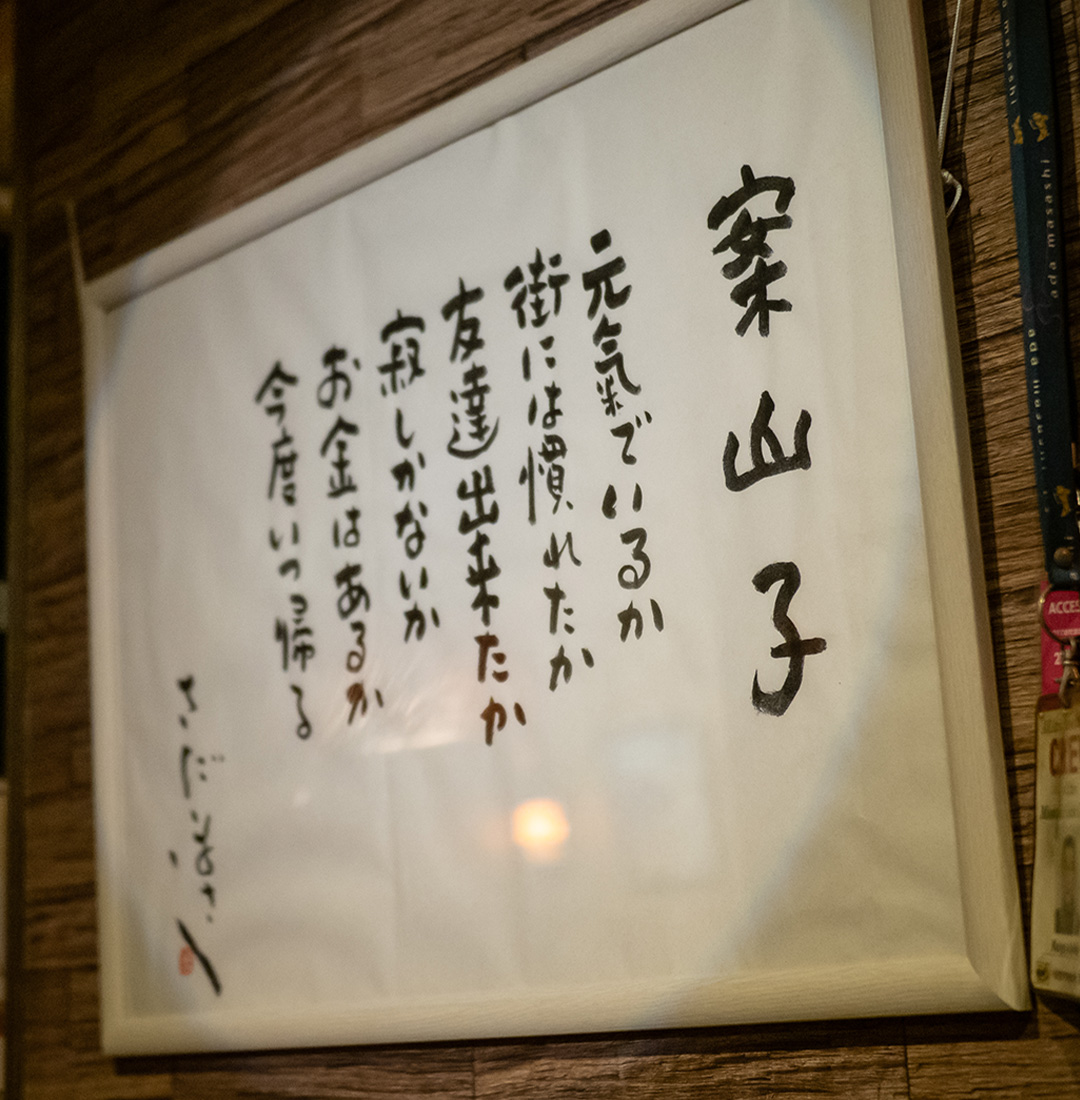 案山子
元氣でいるか
街には慣れたか
友達出来たか
寂しかないか
お金はあるか
今度いつ帰る
さだまさし
masashi
ada masashi
ACCES